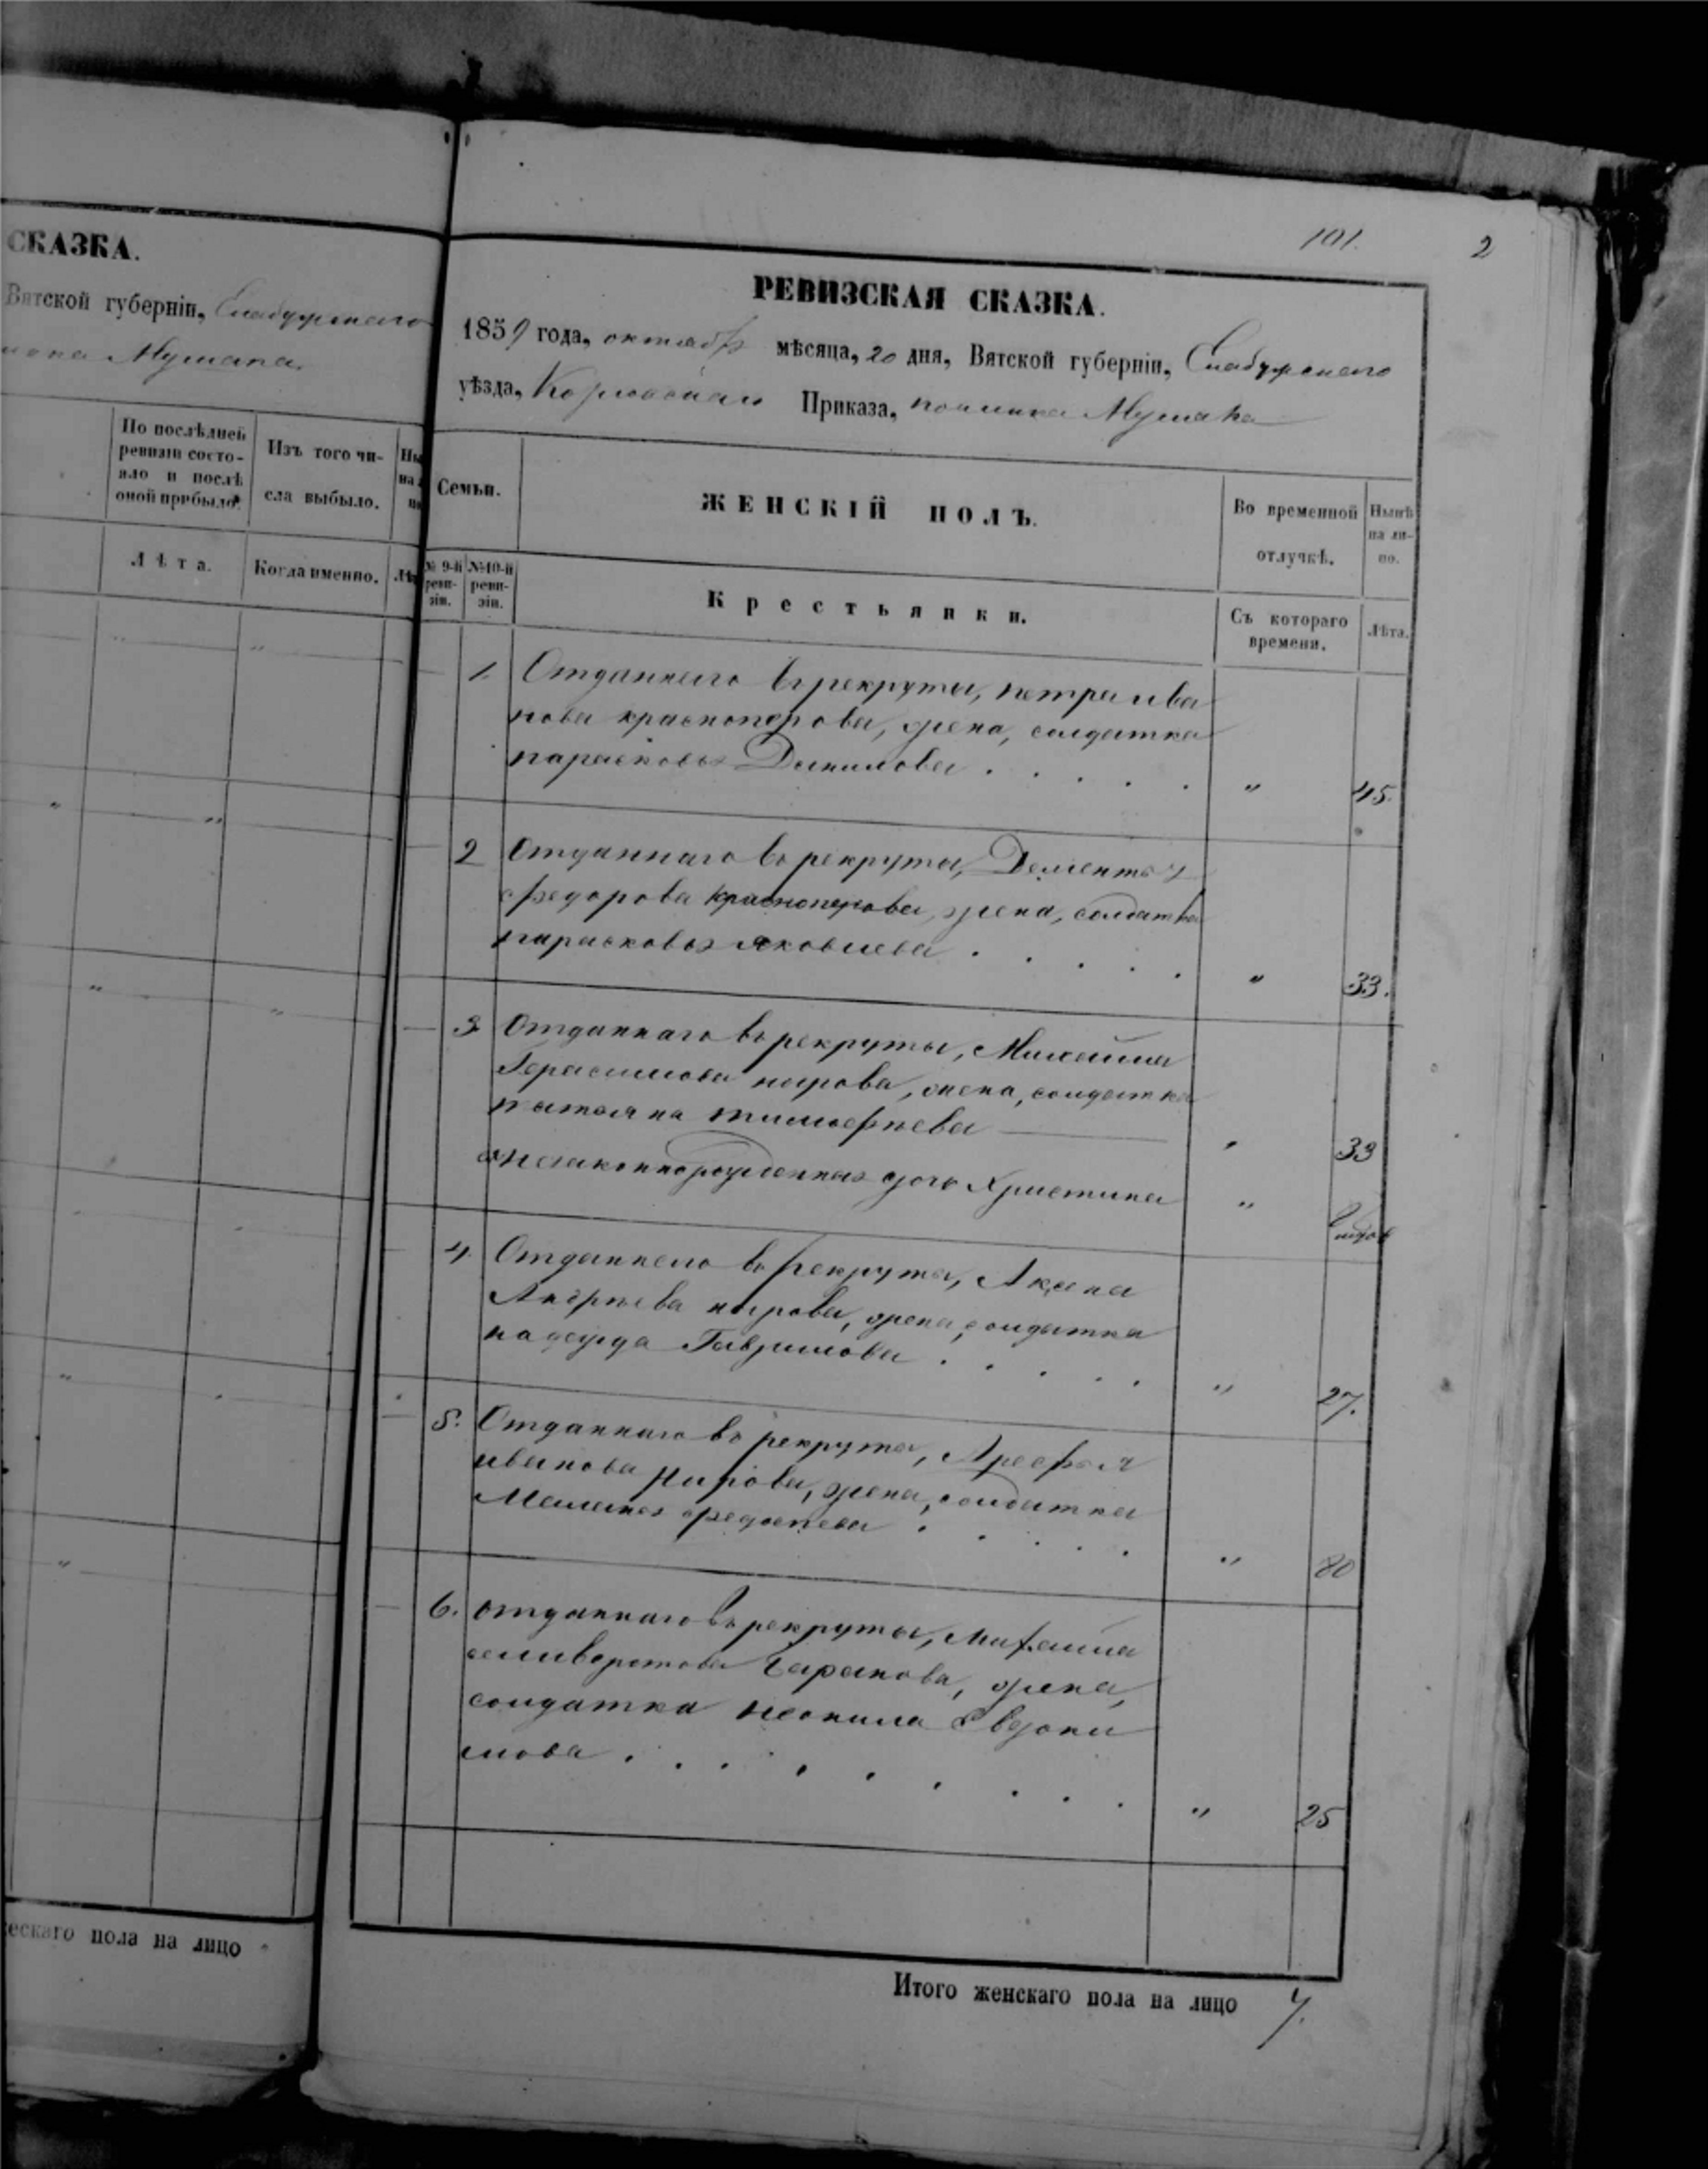 СКАЗКА.
Вятской губерніи, Елабужскаго
Мушака.
По послѣдней
ревизіи состо-
яло и послѣ
оной прибыло.
Изъ того чи-
сла выбыло.
Лѣта.
Когда именно.
ескаго пола на лицо
101. 2
РЕВИЗСКАЯ СКАЗКА.
1859 года, октября мѣсяца, 20 дня, Вятской губерніи, Елабужскаго
уѣзда, Приказа, починка Мушака
Семьи.
ЖЕНСКІЙ ПОЛЪ.
Во временной
отлучкѣ.
Нынѣ
на ли-
цо.
№ 9-й
реви-
зіи.
№ 10-й
реви-
зіи.
Крестьянки.
Съ котораго
времени.
Лѣта.
1. Отданнаго въ рекруты, петра ива
нова красноперова, жена, солдатка
парасковья Данилова . . . . . " 45.
2 Отданнаго въ рекруты, Дементья
федорова красноперова, жена, солдатка
парасковья яковлева . . . . . " 33.
3 Отданнаго въ рекруты, Михайла
Герасимова пырова, жена, солдатка
татьяна тимофеева " 33
незаконнорожденная дочь Христина "
4. Отданнаго въ рекруты, Аксена
Андреева пырова, жена, солдатка
надежда Гаврилова . . . . . " 27.
5. Отданнаго въ рекруты, Арефья
иванова пырова, жена, солдатка
Маланья . . . . . " 80
6. отданнаго въ рекруты, михайла
селиверстова Баранова, жена,
солдатка неонила Евдоки
мова . . . . . . . . . " 25
Итого женскаго пола на лицо 7.